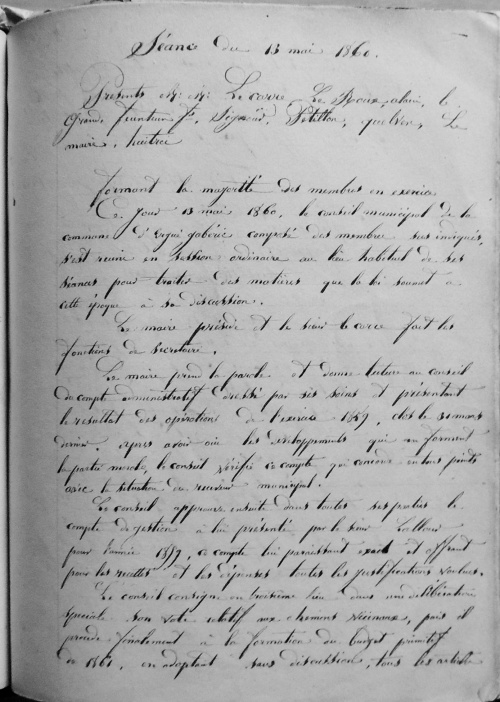 Séance du 13 mai 1860.
Présents M.M. Le corre Le Roux alain, le
Grand, Signour, Pétillon, quelven, Le
maire, huitric
formant la majorité des membres en exercice
Ce jour 13 mai 1860, le conseil municipal de la
commune d'Ergué gabéric composé des membres sus indiqués,
s'est réuni en session ordinaire au lieu habituel de ses
séances pour traiter des matières que la loi soumet à
cette époque à sa discussion.
Le maire préside et le sieur le corre fait les
fonctions de secrétaire.
Le maire prend la parole et donne lecture au conseil
du compte administratif dressé par ses soins et présentant
le résultat des opérations de l'exercice 1859, clos le 31 mars
dernier. après avoir ouï les développements qui en forment
la partie morale, le conseil vérifie ce compte qui concorde en tous points
avec la situation du receveur municipal.
Le conseil approuve ensuite dans toutes ses parties le
compte de gestion à lui présenté par le sieur
pour l'année 1859, ce compte lui paraissant exact et offrant
pour les recettes et les dépenses toutes les justifications voulues.
Le conseil consigne en troisième lieu dans une délibération
spéciale son vote relatif aux chemins vicinaux, puis il
procède finalement à la formation du budget primitif
de 1861, en adoptant sans discussion, tous les articles